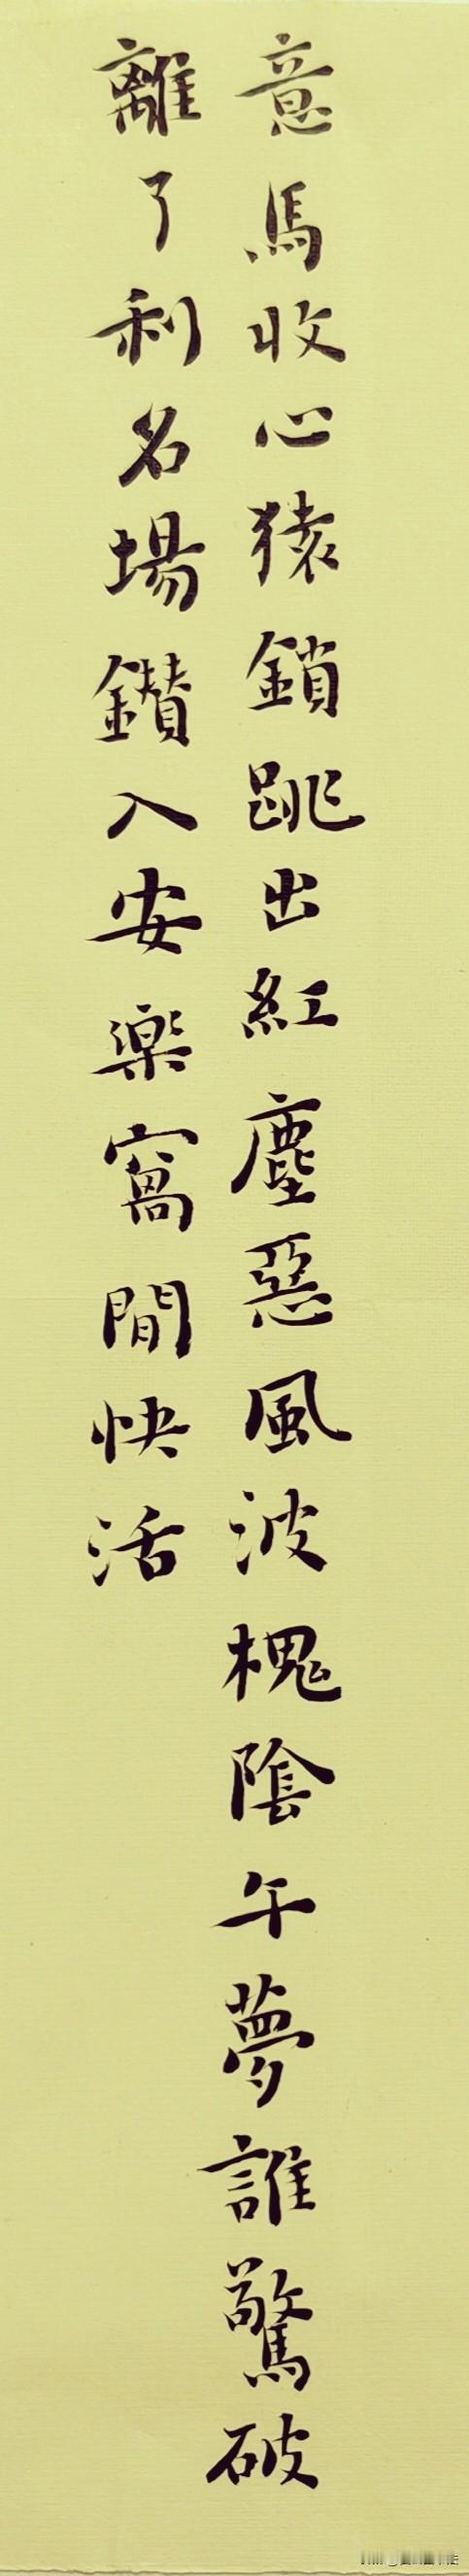 意馬收心猿鎖跳出紅塵惡風波槐陰午夢誰驚破
離了利名場鑽入安樂窩閒快活